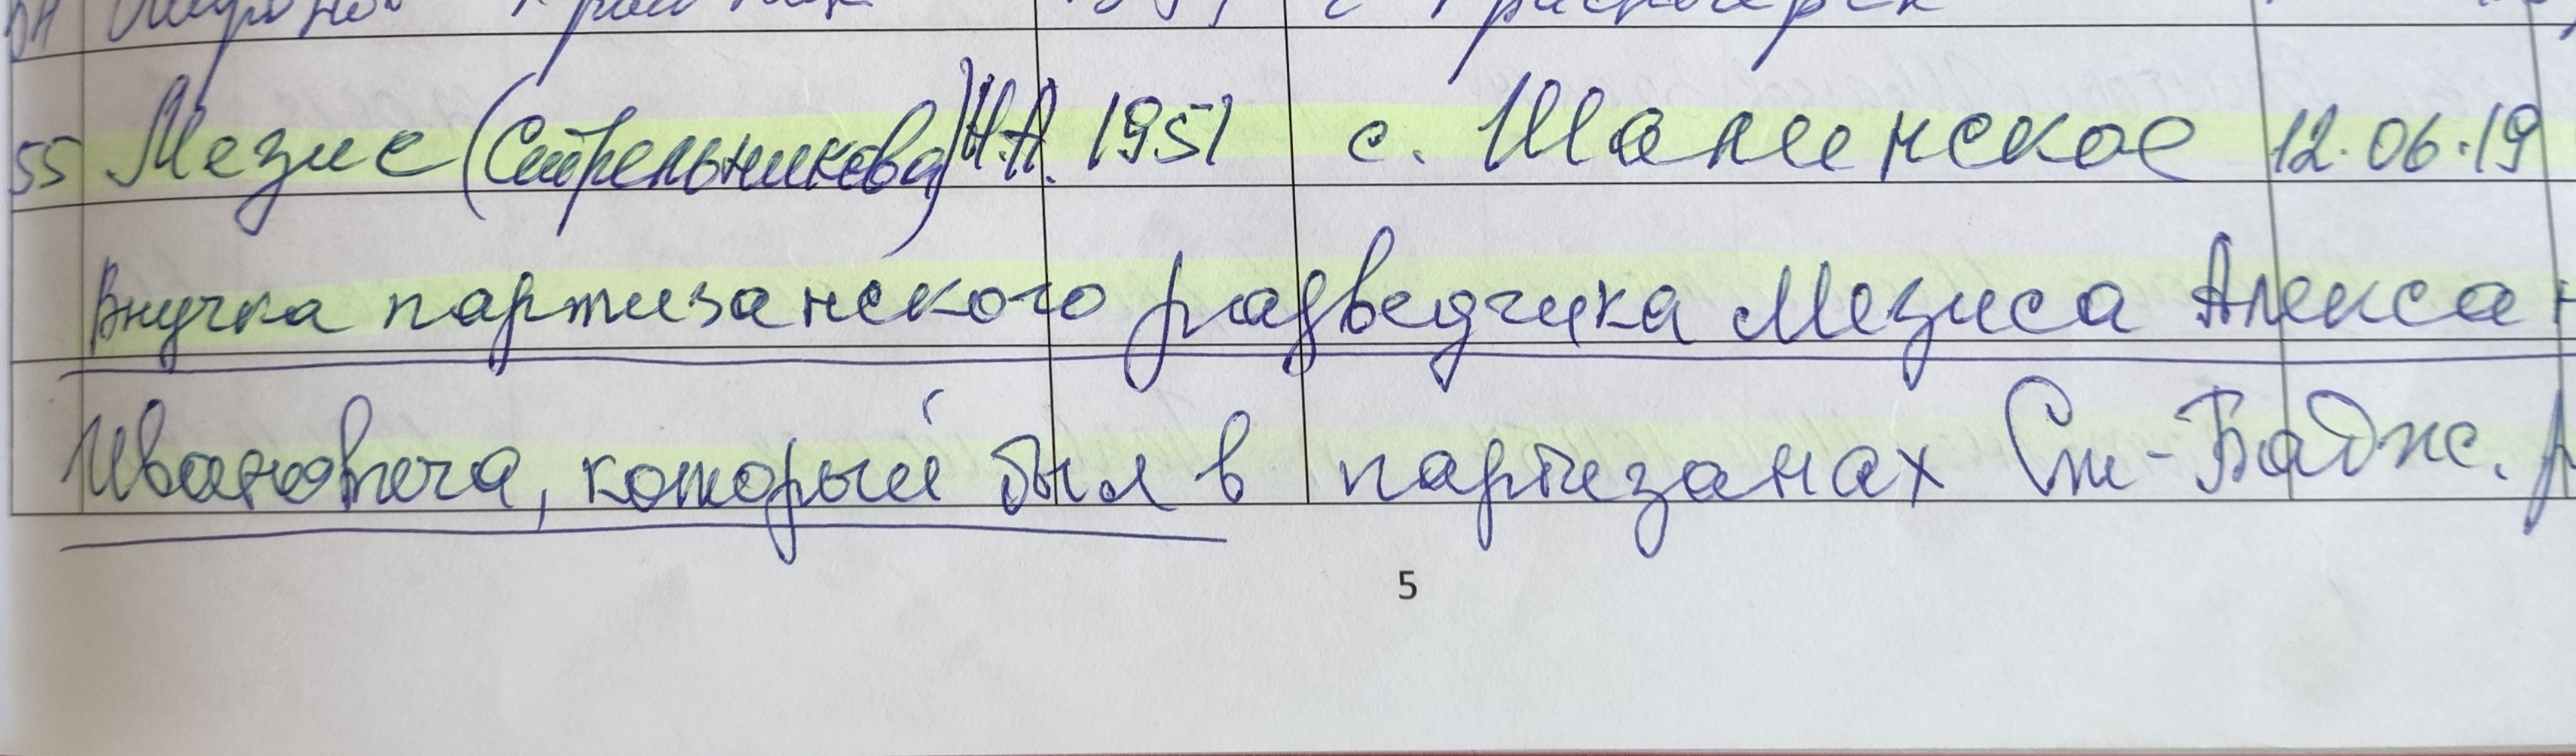 55 Мезис (Стрельникова) Н.А. 1951 с. Шалинское 12.06.19
Внучка партизанского разведчика Мезиса Алекса
Ивановича, который был в партизанах Ст-Баджс.
5